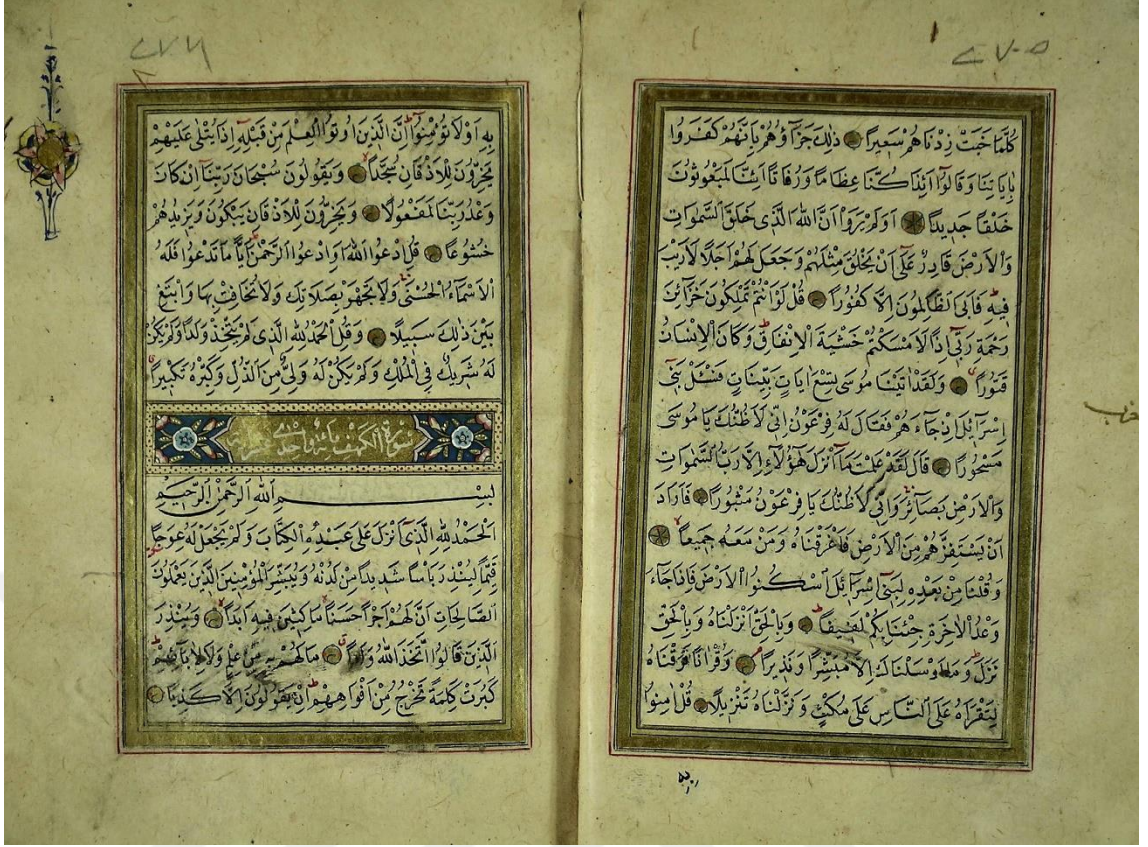 كُلَّمَا خَبَتْ زِدْنَاهُمْ سَعِيرًا ذٰلِكَ جَزَاؤُهُمْ بِاَنَّهُمْ كَفَرُوا
بِاٰيَاتِنَا وَقَالُوا اَئِذَا كُنَّا عِظَامًا وَرُفَاتًا اَئِنَّا لَمَبْعُوثُونَ
خَلْقًا جَدِيدًا اَوَلَمْ يَرَوْا اَنَّ اللهَ الَّذِى خَلَقَ السَّمٰوَاتِ
وَالْاَرْضَ قَادِرٌ عَلٰٓى اَنْ يَخْلُقَ مِثْلَهُمْ وَجَعَلَ لَهُمْ اَجَلًا لَارَيْبَ
فِيهِ فَاَبَى الظَّالِمُونَ اِلَّا كُفُورًا قُلْ لَوْ اَنْتُمْ تَمْلِكُونَ خَزَآئِنَ
رَحْمَةِ رَبِّى اِذًا لَاَمْسَكْتُمْ خَشْيَةَ الْاِنْفَاقِ وَكَانَ الْاِنْسَانُ
قَتُورًا وَلَقَدْ اٰتَيْنَا مُوسٰى تِسْعَ اٰيَاتٍ بَيِّنَاتٍ فَسْئَلْ بَنِٓى
اِسْرَآئِلَ اِذْ جَآءَهُمْ فَقَالَ لَهُ فِرْعَوْنُ اِنِّى لَاَظُنُّكَ يَا مُوسٰى
مَسْحُورًا قَالَ لَقَدْ عَلِمْتَ مَآ اَنْزَلَ هٰٓؤُلَآءِ اِلَّا رَبُّ السَّمٰوَاتِ
وَالْاَرْضِ بَصَآئِرَ وَاِنِّى لَاَظُنُّكَ يَا فِرْعَوْنُ مَثْبُورًا فَاَرَادَ
اَنْ يَسْتَفِزَّهُمْ مِنَ الْاَرْضِ فَاَغْرَقْنَاهُ وَمَنْ مَعَهُ جَمِيعًا
وَقُلْنَا مِنْ بَعْدِهِ لِبَنِٓى اِسْرَآئِلَ اسْكُنُوا الْاَرْضَ فَاِذَا جَآءَ
وَعْدُ الْاٰخِرَةِ جِئْنَا بِكُمْ لَفِيفًا وَبِالْحَقِّ اَنْزَلْنَاهُ وَبِالْحَقِّ
نَزَلَ وَمَآ اَرْسَلْنَاكَ اِلَّا مُبَشِّرًا وَنَذِيرًا وَقُرْاٰنًا فَرَقْنَاهُ
لِتَقْرَاَهُ عَلَى النَّاسِ عَلٰى مُكْثٍ وَنَزَّلْنَاهُ تَنْزِيلًا قُلْ اٰمِنُوا
بِهِ
بِهِ اَوْ لَا تُؤْمِنُوا اِنَّ الَّذِينَ اُوتُوا الْعِلْمَ مِنْ قَبْلِهِ اِذَا يُتْلٰى عَلَيْهِمْ
يَخِرُّونَ لِلْاَذْقَانِ سُجَّدًا وَيَقُولُونَ سُبْحَانَ رَبِّنَا اِنْ كَانَ
وَعْدُ رَبِّنَا لَمَفْعُولًا وَيَخِرُّونَ لِلْاَذْقَانِ يَبْكُونَ وَيَزِيدُهُمْ
خُشُوعًا قُلِ ادْعُوا اللهَ اَوِ ادْعُوا الرَّحْمٰنَ اَيًّا مَا تَدْعُوا فَلَهُ
الْاَسْمَآءُ الْحُسْنٰى وَلَا تَجْهَرْ بِصَلَاتِكَ وَلَا تُخَافِتْ بِهَا وَابْتَغِ
بَيْنَ ذٰلِكَ سَبِيلًا وَقُلِ الْحَمْدُ لِلهِ الَّذِى لَمْ يَتَّخِذْ وَلَدًا وَلَمْ يَكُنْ
لَهُ شَرِيكٌ فِى الْمُلْكِ وَلَمْ يَكُنْ لَهُ وَلِىٌّ مِنَ الذُّلِّ وَكَبِّرْهُ تَكْبِيرًا
سورة الكهف مائة واحدى عشر
بِسْمِ اللهِ الرَّحْمٰنِ الرَّحِيمِ
اَلْحَمْدُ لِلهِ الَّذِٓى اَنْزَلَ عَلٰى عَبْدِهِ الْكِتَابَ وَلَمْ يَجْعَلْ لَهُ عِوَجًا
قَيِّمًا لِيُنْذِرَ بَاْسًا شَدِيدًا مِنْ لَدُنْهُ وَيُبَشِّرَ الْمُؤْمِنِينَ الَّذِينَ يَعْمَلُونَ
الصَّالِحَاتِ اَنَّ لَهُمْ اَجْرًا حَسَنًا مَاكِثِينَ فِيهِ اَبَدًا وَيُنْذِرَ
الَّذِينَ قَالُوا اتَّخَذَ اللهُ وَلَدًا مَا لَهُمْ بِهِ مِنْ عِلْمٍ وَلَا لِاٰبَآئِهِمْ
كَبُرَتْ كَلِمَةً تَخْرُجُ مِنْ اَفْوَاهِهِمْ اِنْ يَقُولُونَ اِلَّا كَذِبًا